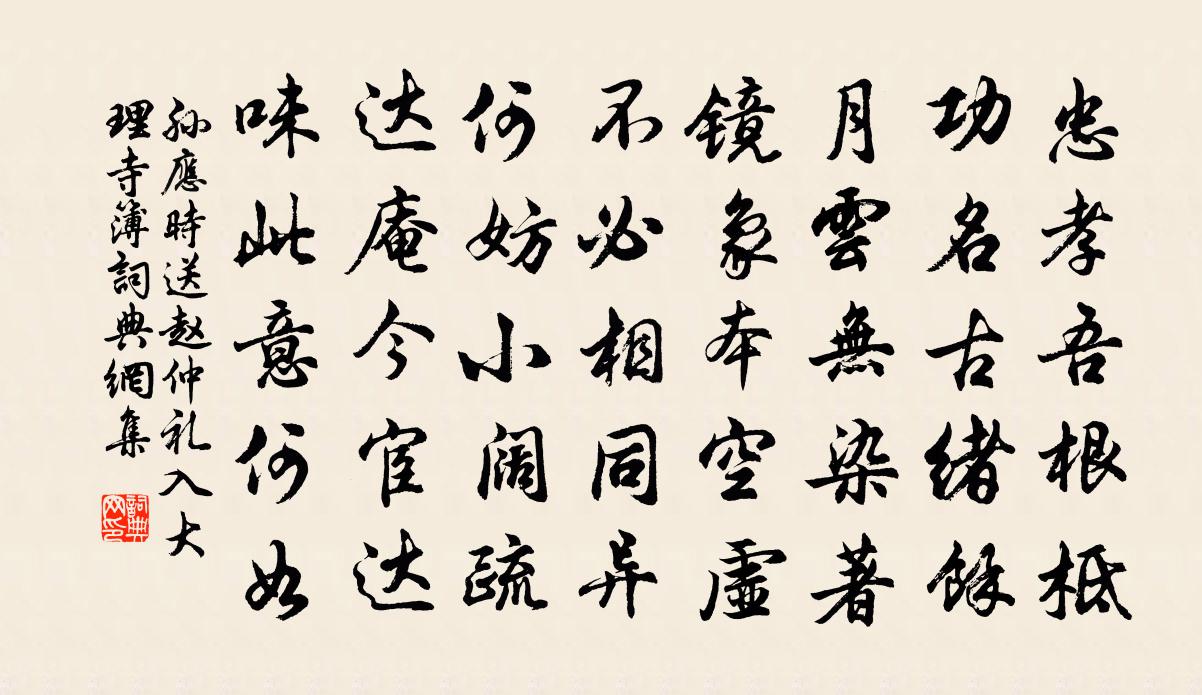 忠孝吾根柢
功名古绪餘
月雲無染著
镜象本空虛
不必相同异
何妨小阔疏
达庵今宦达
味此意何如
孙應時送赵仲礼入大
理寺簿詞典網集
詞典網印